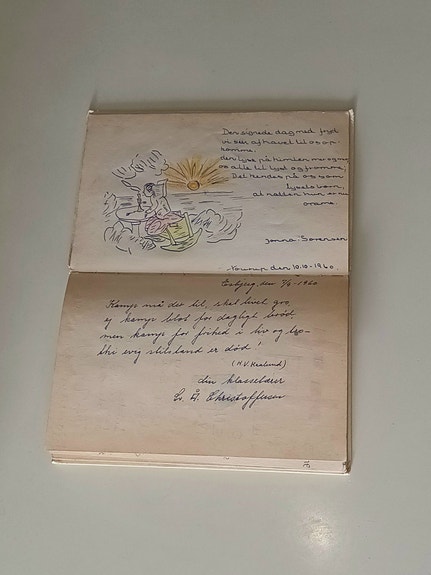 Den signede dag med fryd
vi ser af havet til os op-
komme,
den lyse på himlen mer og mer
os alle til lyst og fromme,
Det kendes på os som
lysets børn,
at natten hun er nu
omme.
Jonna Sørensen
den 10.10-1960.
Esbjerg, den 7/9 1960
Kamp må der til, skal livet gro,
ej kamp blot for dagligt brød
men kamp for frihed i liv og tro-
thi evig stilstand er død!
(H.V. Kaalund)
din klasselærer
Christoffersen